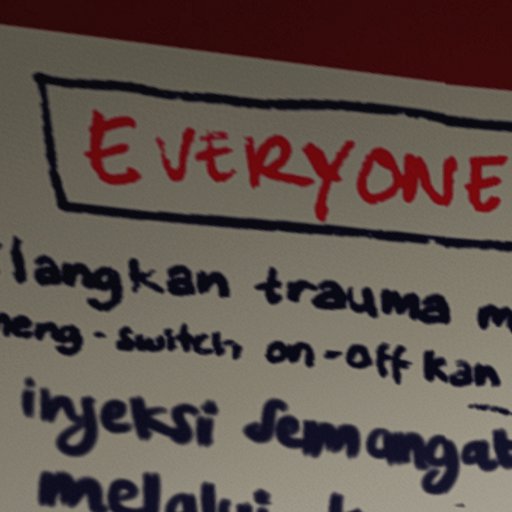 EVERYONE
langkan trauma m
meng-switch on-off kan
injeksi semangat
melalui